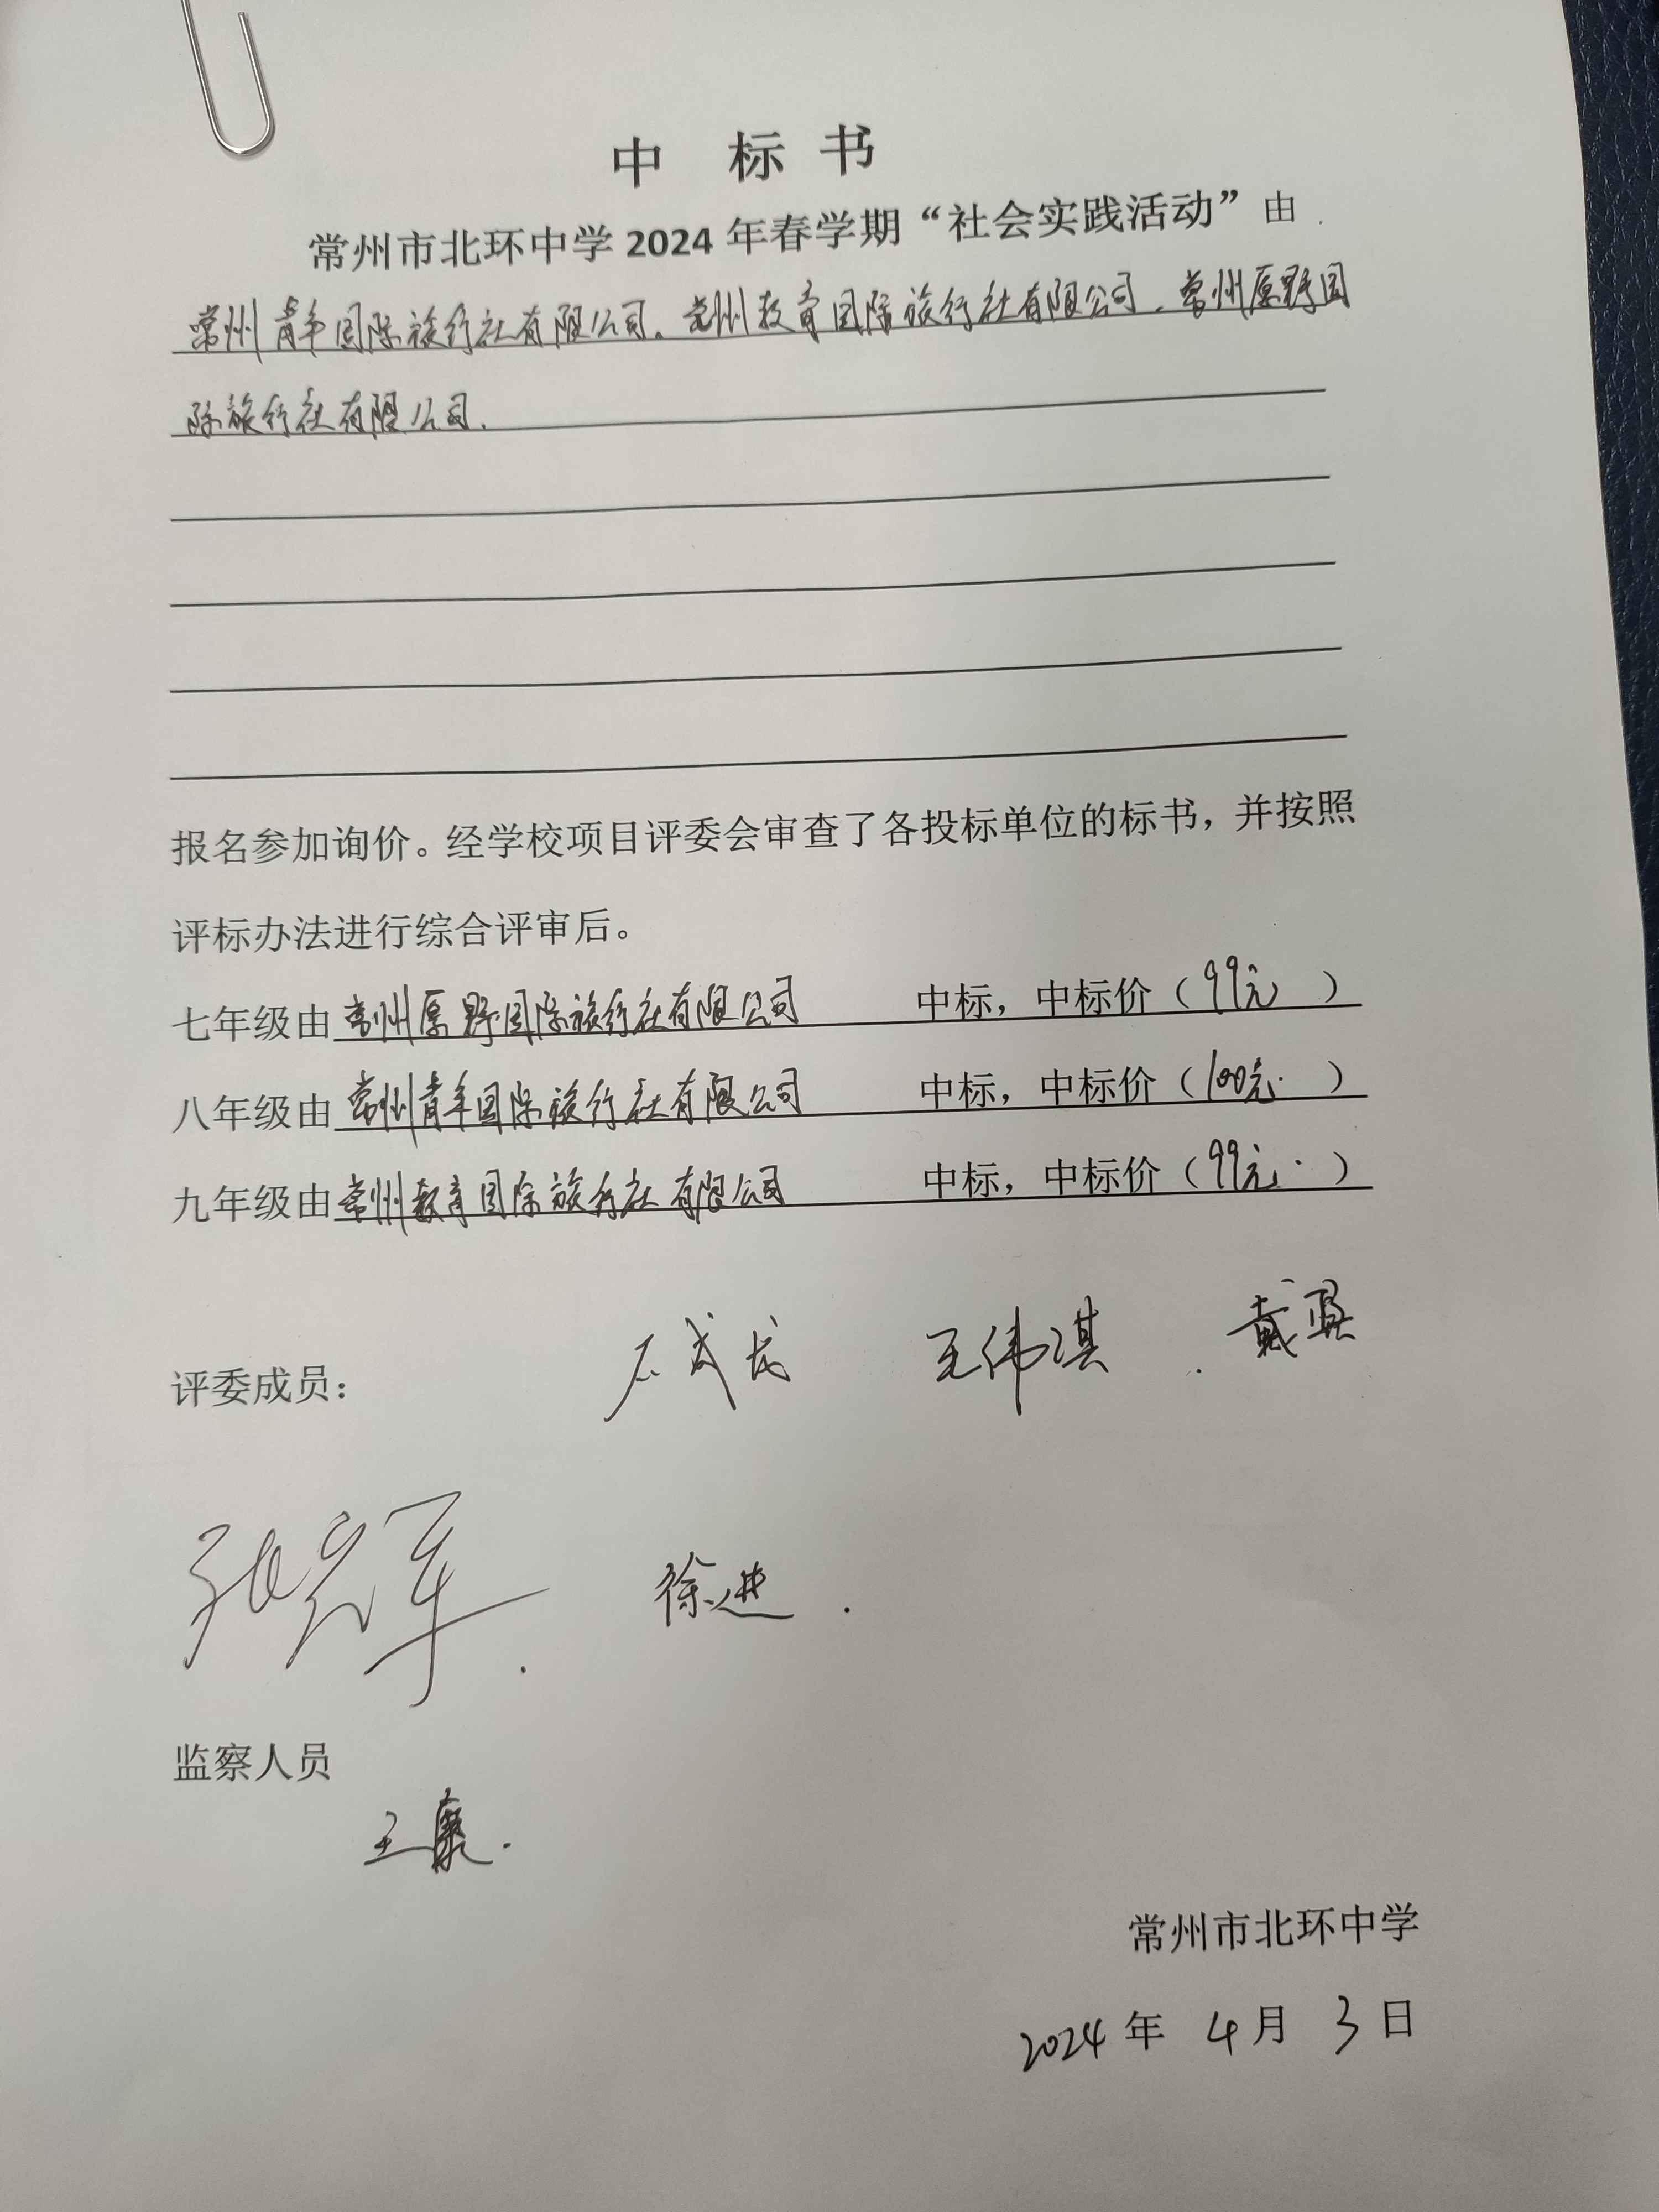 中 标 书
常州市北环中学 2024 年春学期“社会实践活动”由
常州青年国际旅行社有限公司、常州教育国际旅行社有限公司、常州原野国
际旅行社有限公司.
报名参加询价。经学校项目评委会审查了各投标单位的标书，并按照
评标办法进行综合评审后。
七年级由常州原野国际旅行社有限公司 中标，中标价（99元 ）
八年级由常州青年国际旅行社有限公司 中标，中标价（100元. ）
九年级由常州教育国际旅行社有限公司 中标，中标价（99元. ）
评委成员： 王伟琪
徐进.
监察人员
常州市北环中学
2024 年 4 月 3 日